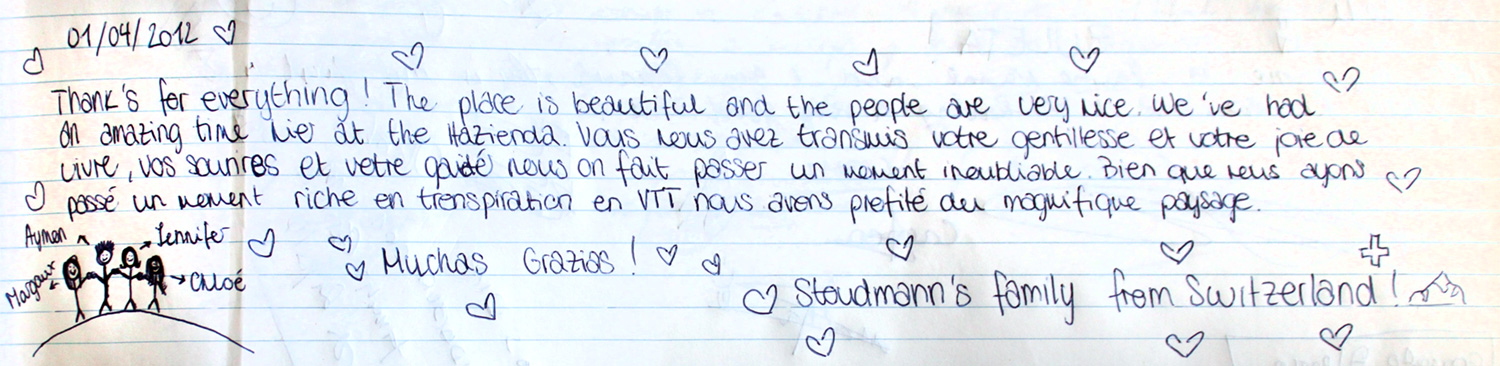 01/04/2012
Thank's for everything! The place is beautiful and the people are very nice. We've had
an amazing time hier at the Hazienda. Vous nous avez transmis votre gentillesse et votre joie de
vivre, vos sourires et votre gaité nous on fait passer un moment inoubliable. Bien que nous ayons
passé un moment riche en trenspiration en VTT nous avons profité du magnifique paysage.
Aymon
Jennifer
Margaux
Chloé
Muchas Grazias!
Stoudmann's family from Switzerland!